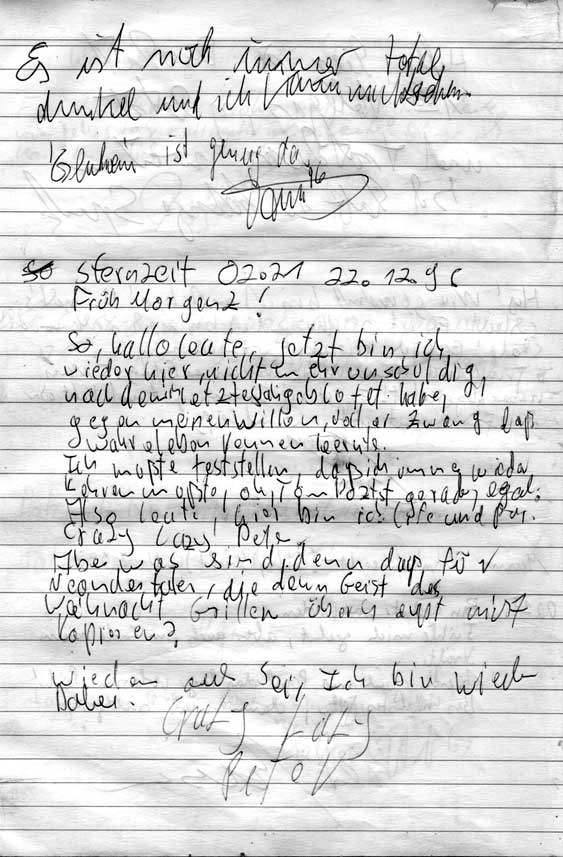 Es ist noch immer total
dunkel und ich kann nicht sehen.
Gluhein ist genug da.
96
So Sternzeit 02.21 22.12.96
Früh Morgenz!
So, hallo leute, jetzt bin ich
wieder hier, nicht mehr unschuldig,
nachdem ich letztes habe,
gegen meinen Willen, voller Zwang dap
wahre leben kennen lernte.
Ich mußte feststellen, dap ich immer wieder
kehren mopte, oh, ich gerade, egal.
Also leute, hier bin ich Life und Pur.
Crazy Lazy Pete.
Abe was sind denn dap für
Neondertaler, die denn Geist des
Weihnacht Grillen überhaupt nicht
kapieren?
wieder auf Sei, Ich bin wieder
Dabei.
Crazy Lazy
Peter